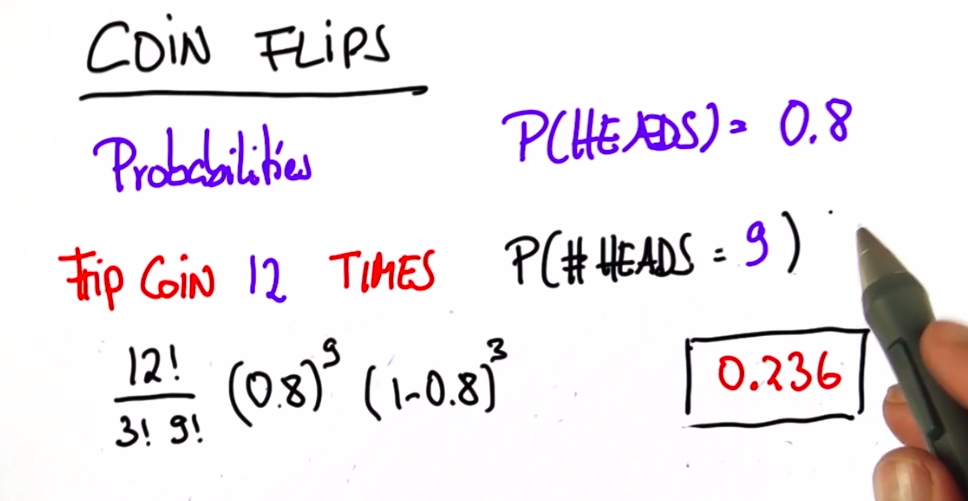 COIN FLIPS
Probabilities
P(HEADS) = 0.8
Flip COIN 12 TIMES
P(# HEADS = 9)
12! / 3! 9! (0.8)^9 (1-0.8)^3
0.236